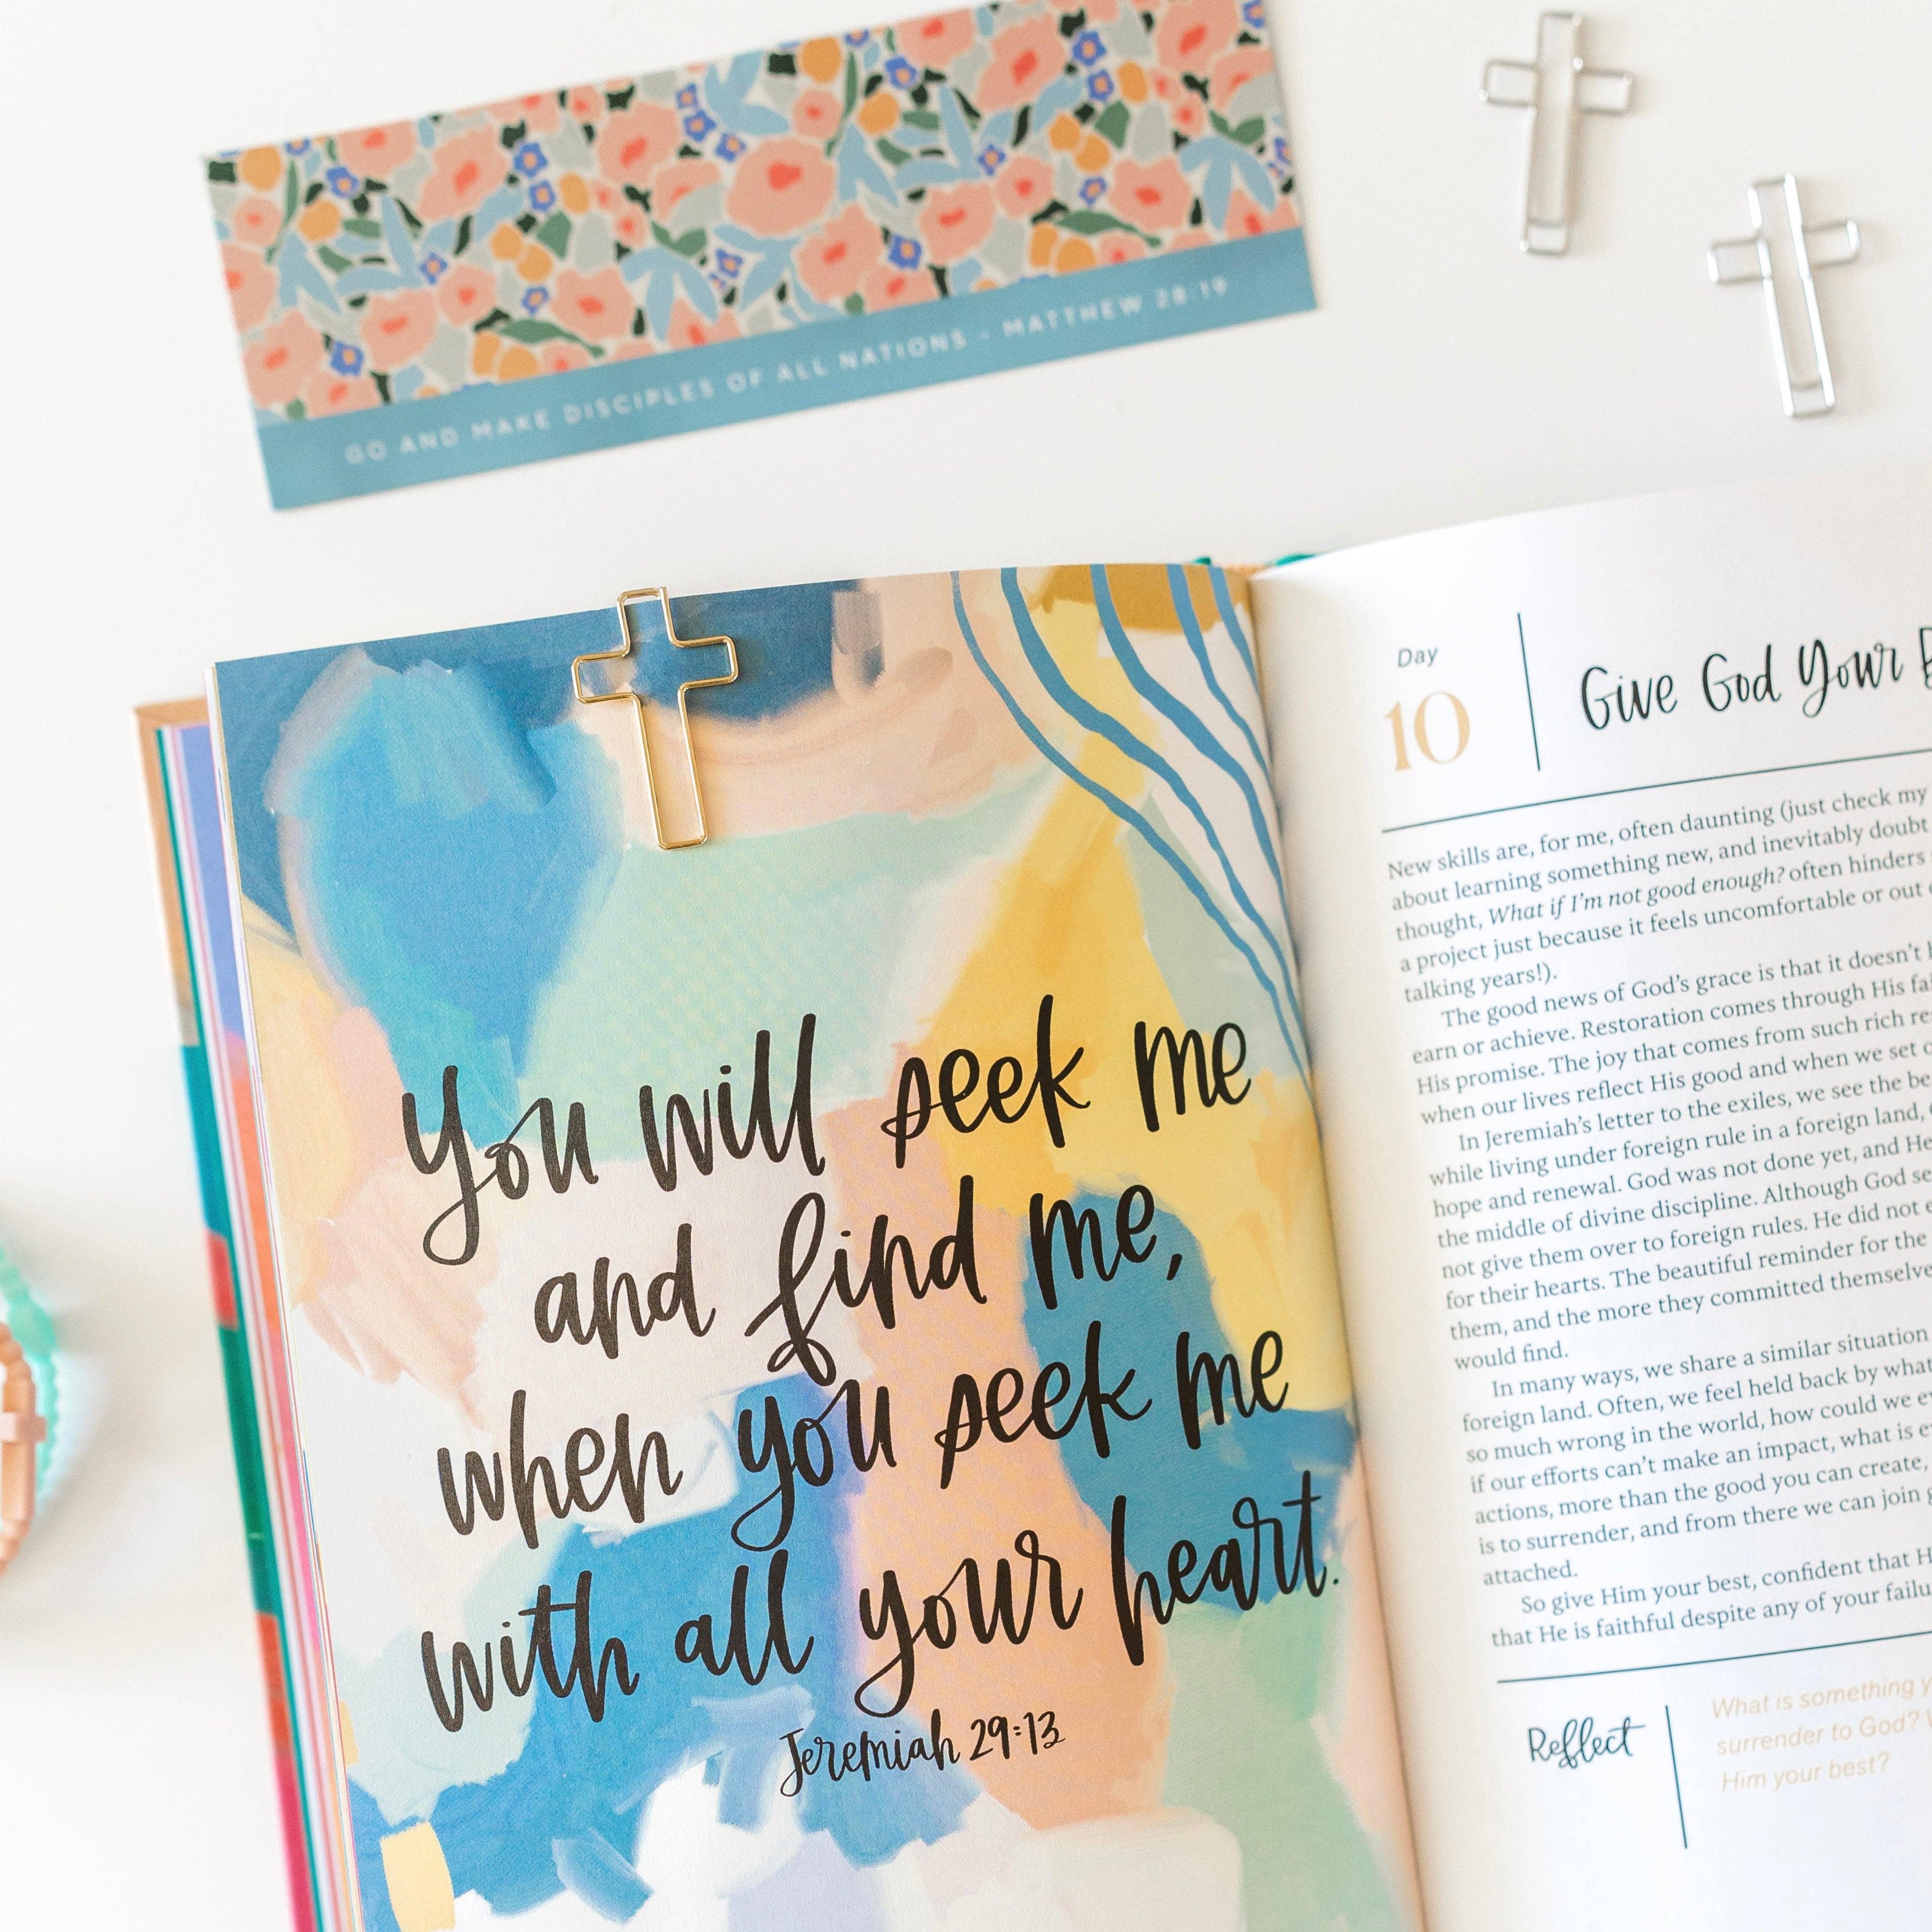 GO AND MAKE DISCIPLES OF ALL NATIONS - MATTHEW 28:19
You will seek me
and find me,
when you seek me
with all your heart.
Jeremiah 29:13
Day
10
Give God Your
New skills are, for me, often daunting (just check my
about learning something new, and inevitably doubt
thought, What if I'm not good enough? often hinders
a project just because it feels uncomfortable or out
talking years!).
The good news of God's grace is that it doesn't
earn or achieve. Restoration comes through His
His promise. The joy that comes from such rich
when our lives reflect His good and when we set
In Jeremiah's letter to the exiles, we see the
while living under foreign rule in a foreign land,
hope and renewal. God was not done yet, and He
the middle of divine discipline. Although God
not give them over to foreign rules. He did not
for their hearts. The beautiful reminder for the
them, and the more they committed
would find.
In many ways, we share a similar situation
foreign land. Often, we feel held back by what
so much wrong in the world, how could we
if our efforts can't make an impact, what is
actions, more than the good you can create,
is to surrender, and from there we can join
attached.
So give Him your best, confident that
that He is faithful despite any of your
Reflect
What is something
surrender to God?
Him your best?